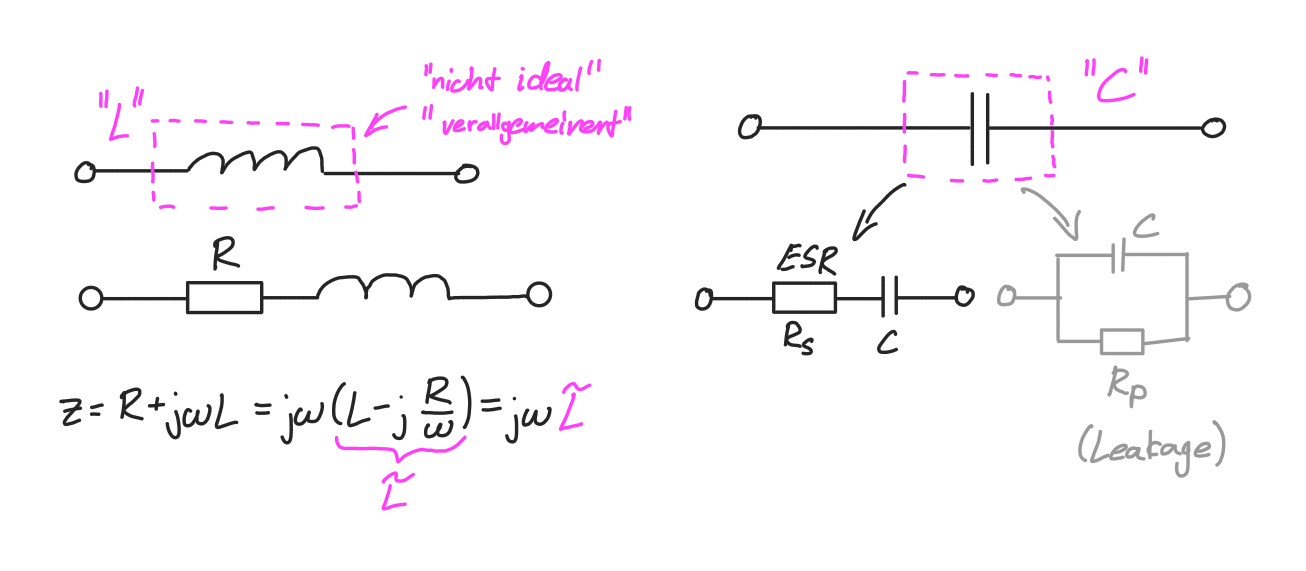 "L"
"nicht ideal"
"verallgemeinert"
R
z = R + jωL = jω(L - j R/ω) = jω L̃
L̃
"C"
ESR
Rs
C
C
Rp
(Leakage)